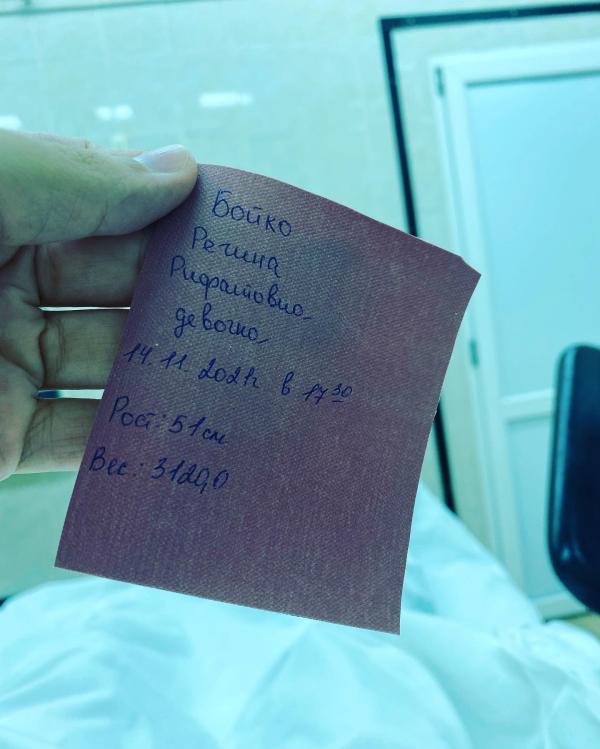 Бойко
Регина
Рифатовна
девочка
14.11.2021г в 17³⁰
Рост: 51см
Вес: 3120,0